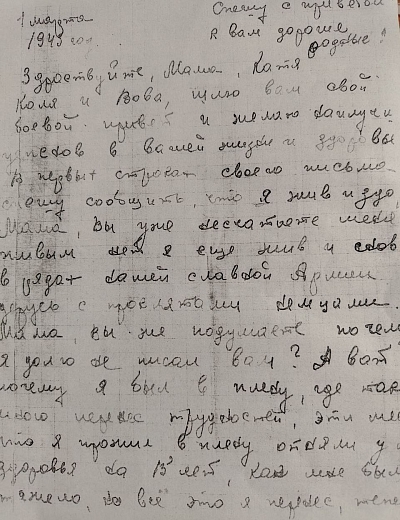 1 марта
1943 год
Спешу с приветом
к вам дорогие
родные!
Здраствуйте, Мама, Катя
Коля и Вова, шлю вам свой
боевой привет и желаю наилучш
успехов в вашей жизни и здоровье
В первых строках своего письма
спешу сообщить, что я жив и здо
Мама, вы уже не считаете меня
живым нет я еще жив и снов
в рядах нашей славной Армии
дерусь с проклятыми немцами.
Мама, вы не подумаете почем
я долго не писал вам? А ват
почему я был в плену, где так
много перенес трудностей, эти ме
что я прожил в плену отняли у м
здоровья на 13 лет, как мне был
тяжело, но всё это я перенес, тепе